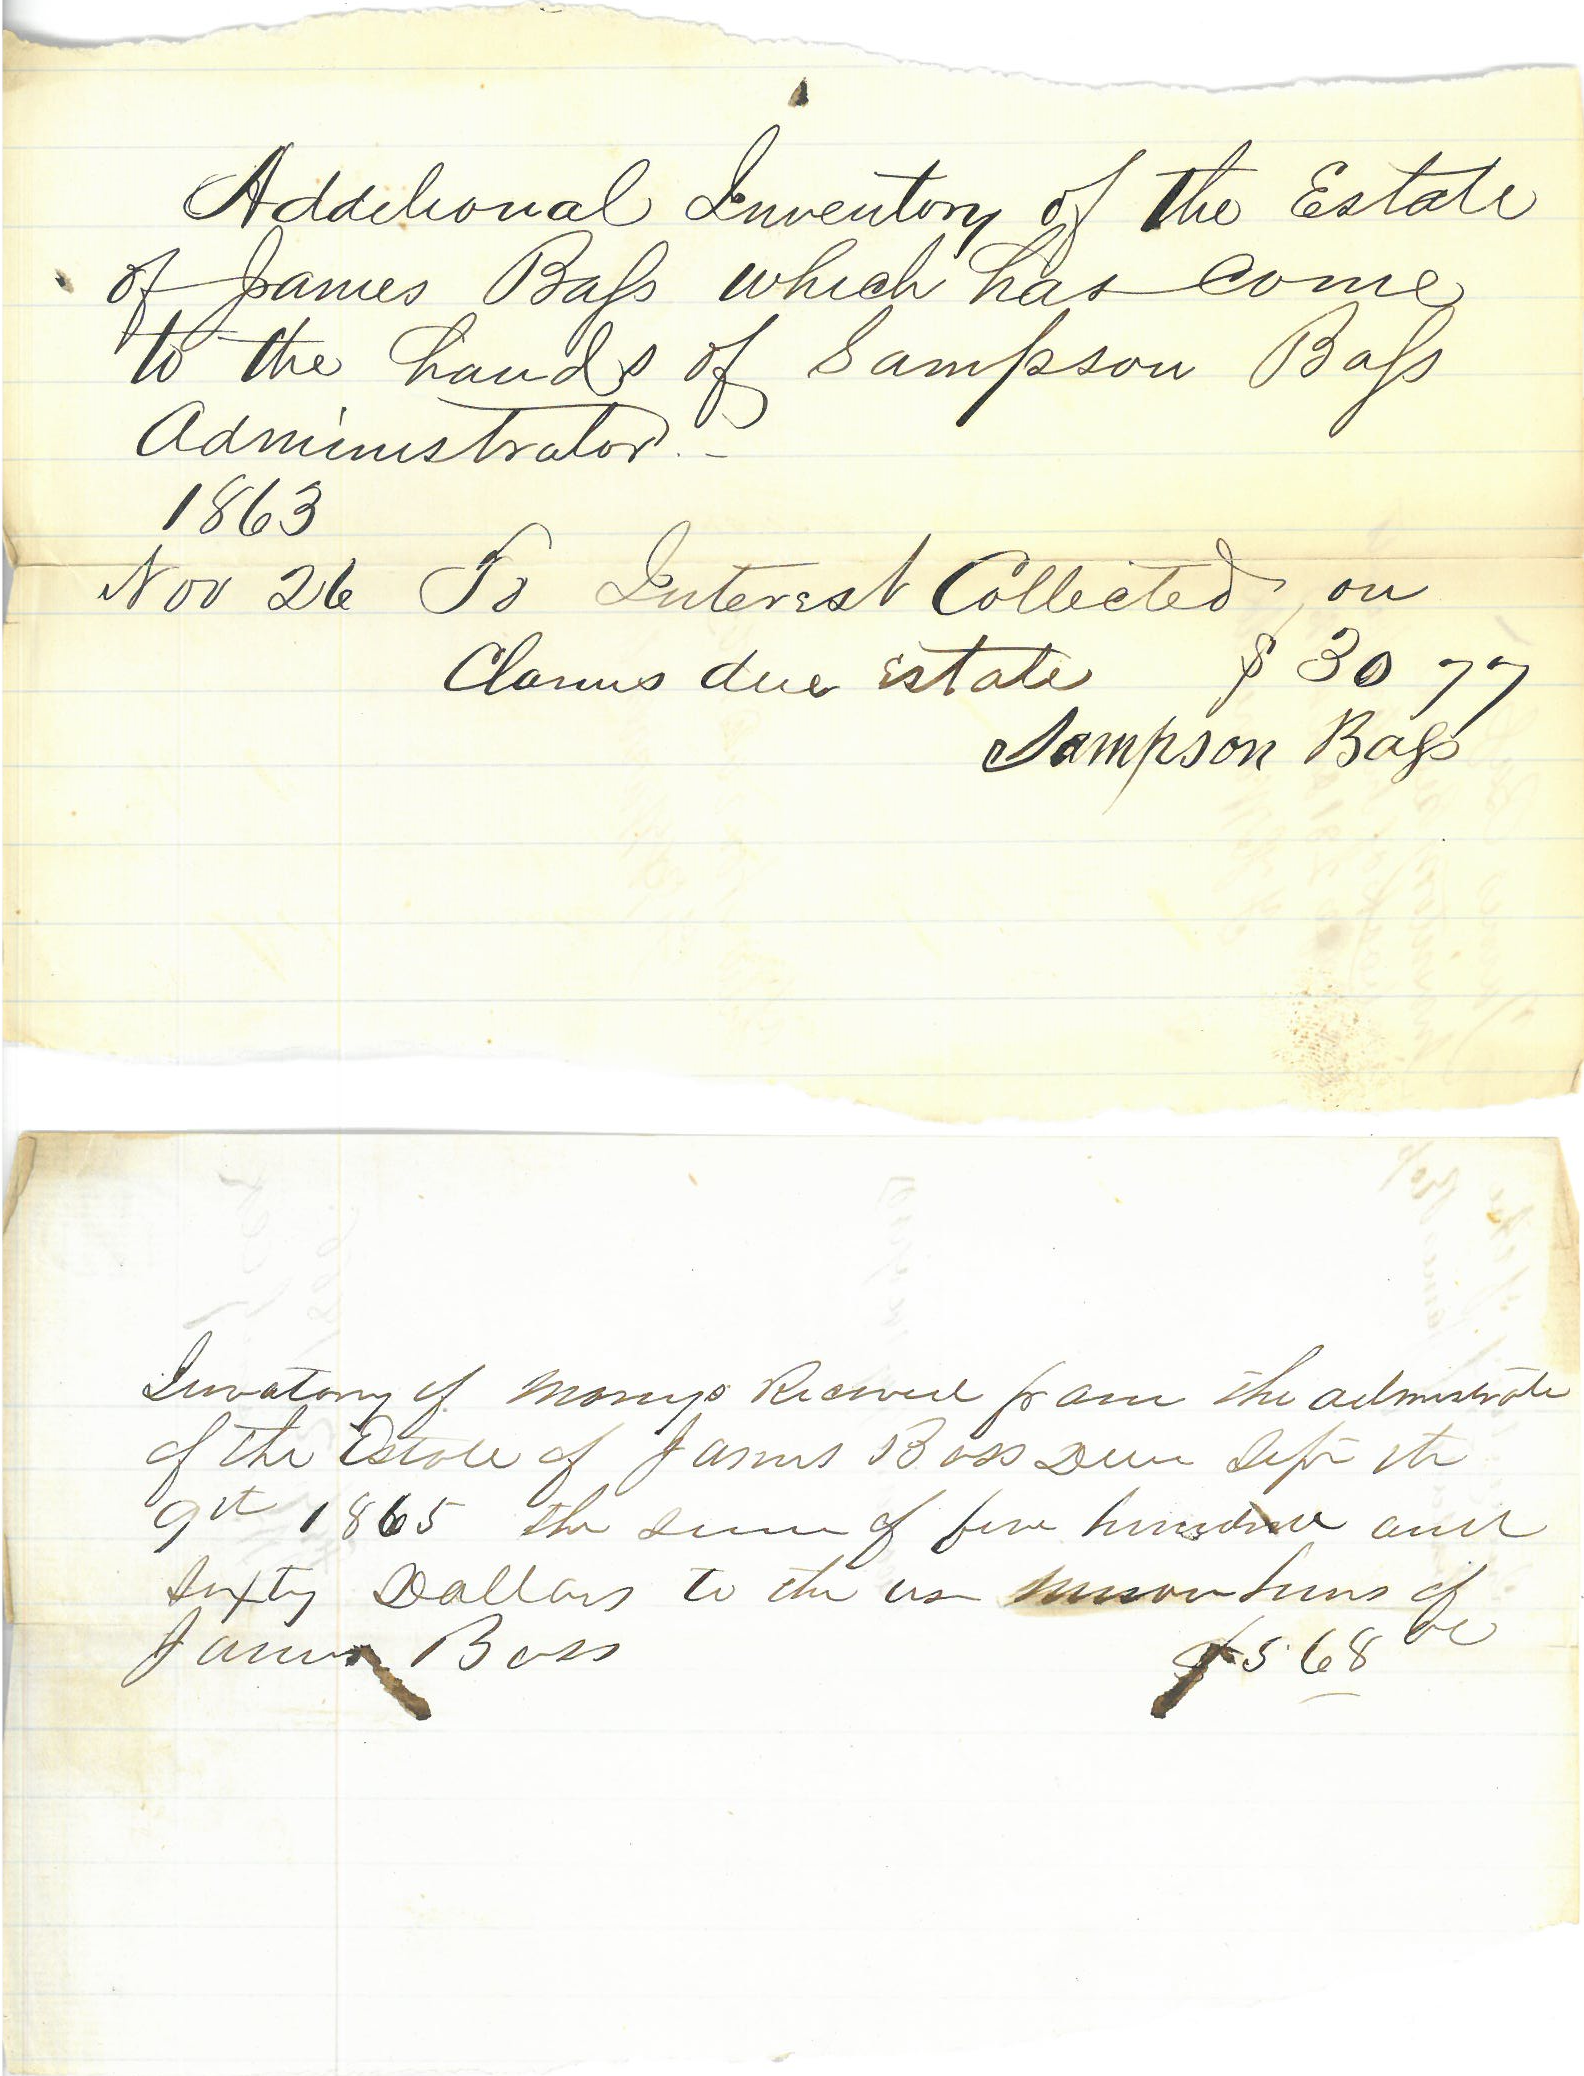 Additional Inventory of the Estate
of James Bass which has come
to the hands of Sampson Bass
Administrator. -
1863
Nov 26 To Interest Collected on
Claims due estate $ 30 77
Sampson Bass
Invatory of Monys Recieved from the administrator
of the Estate of James Bass Decd Sept the
9th 1865 the sum of five hundred and
Sixty Dollars to the use Minor heirs of
James Bass $568 00